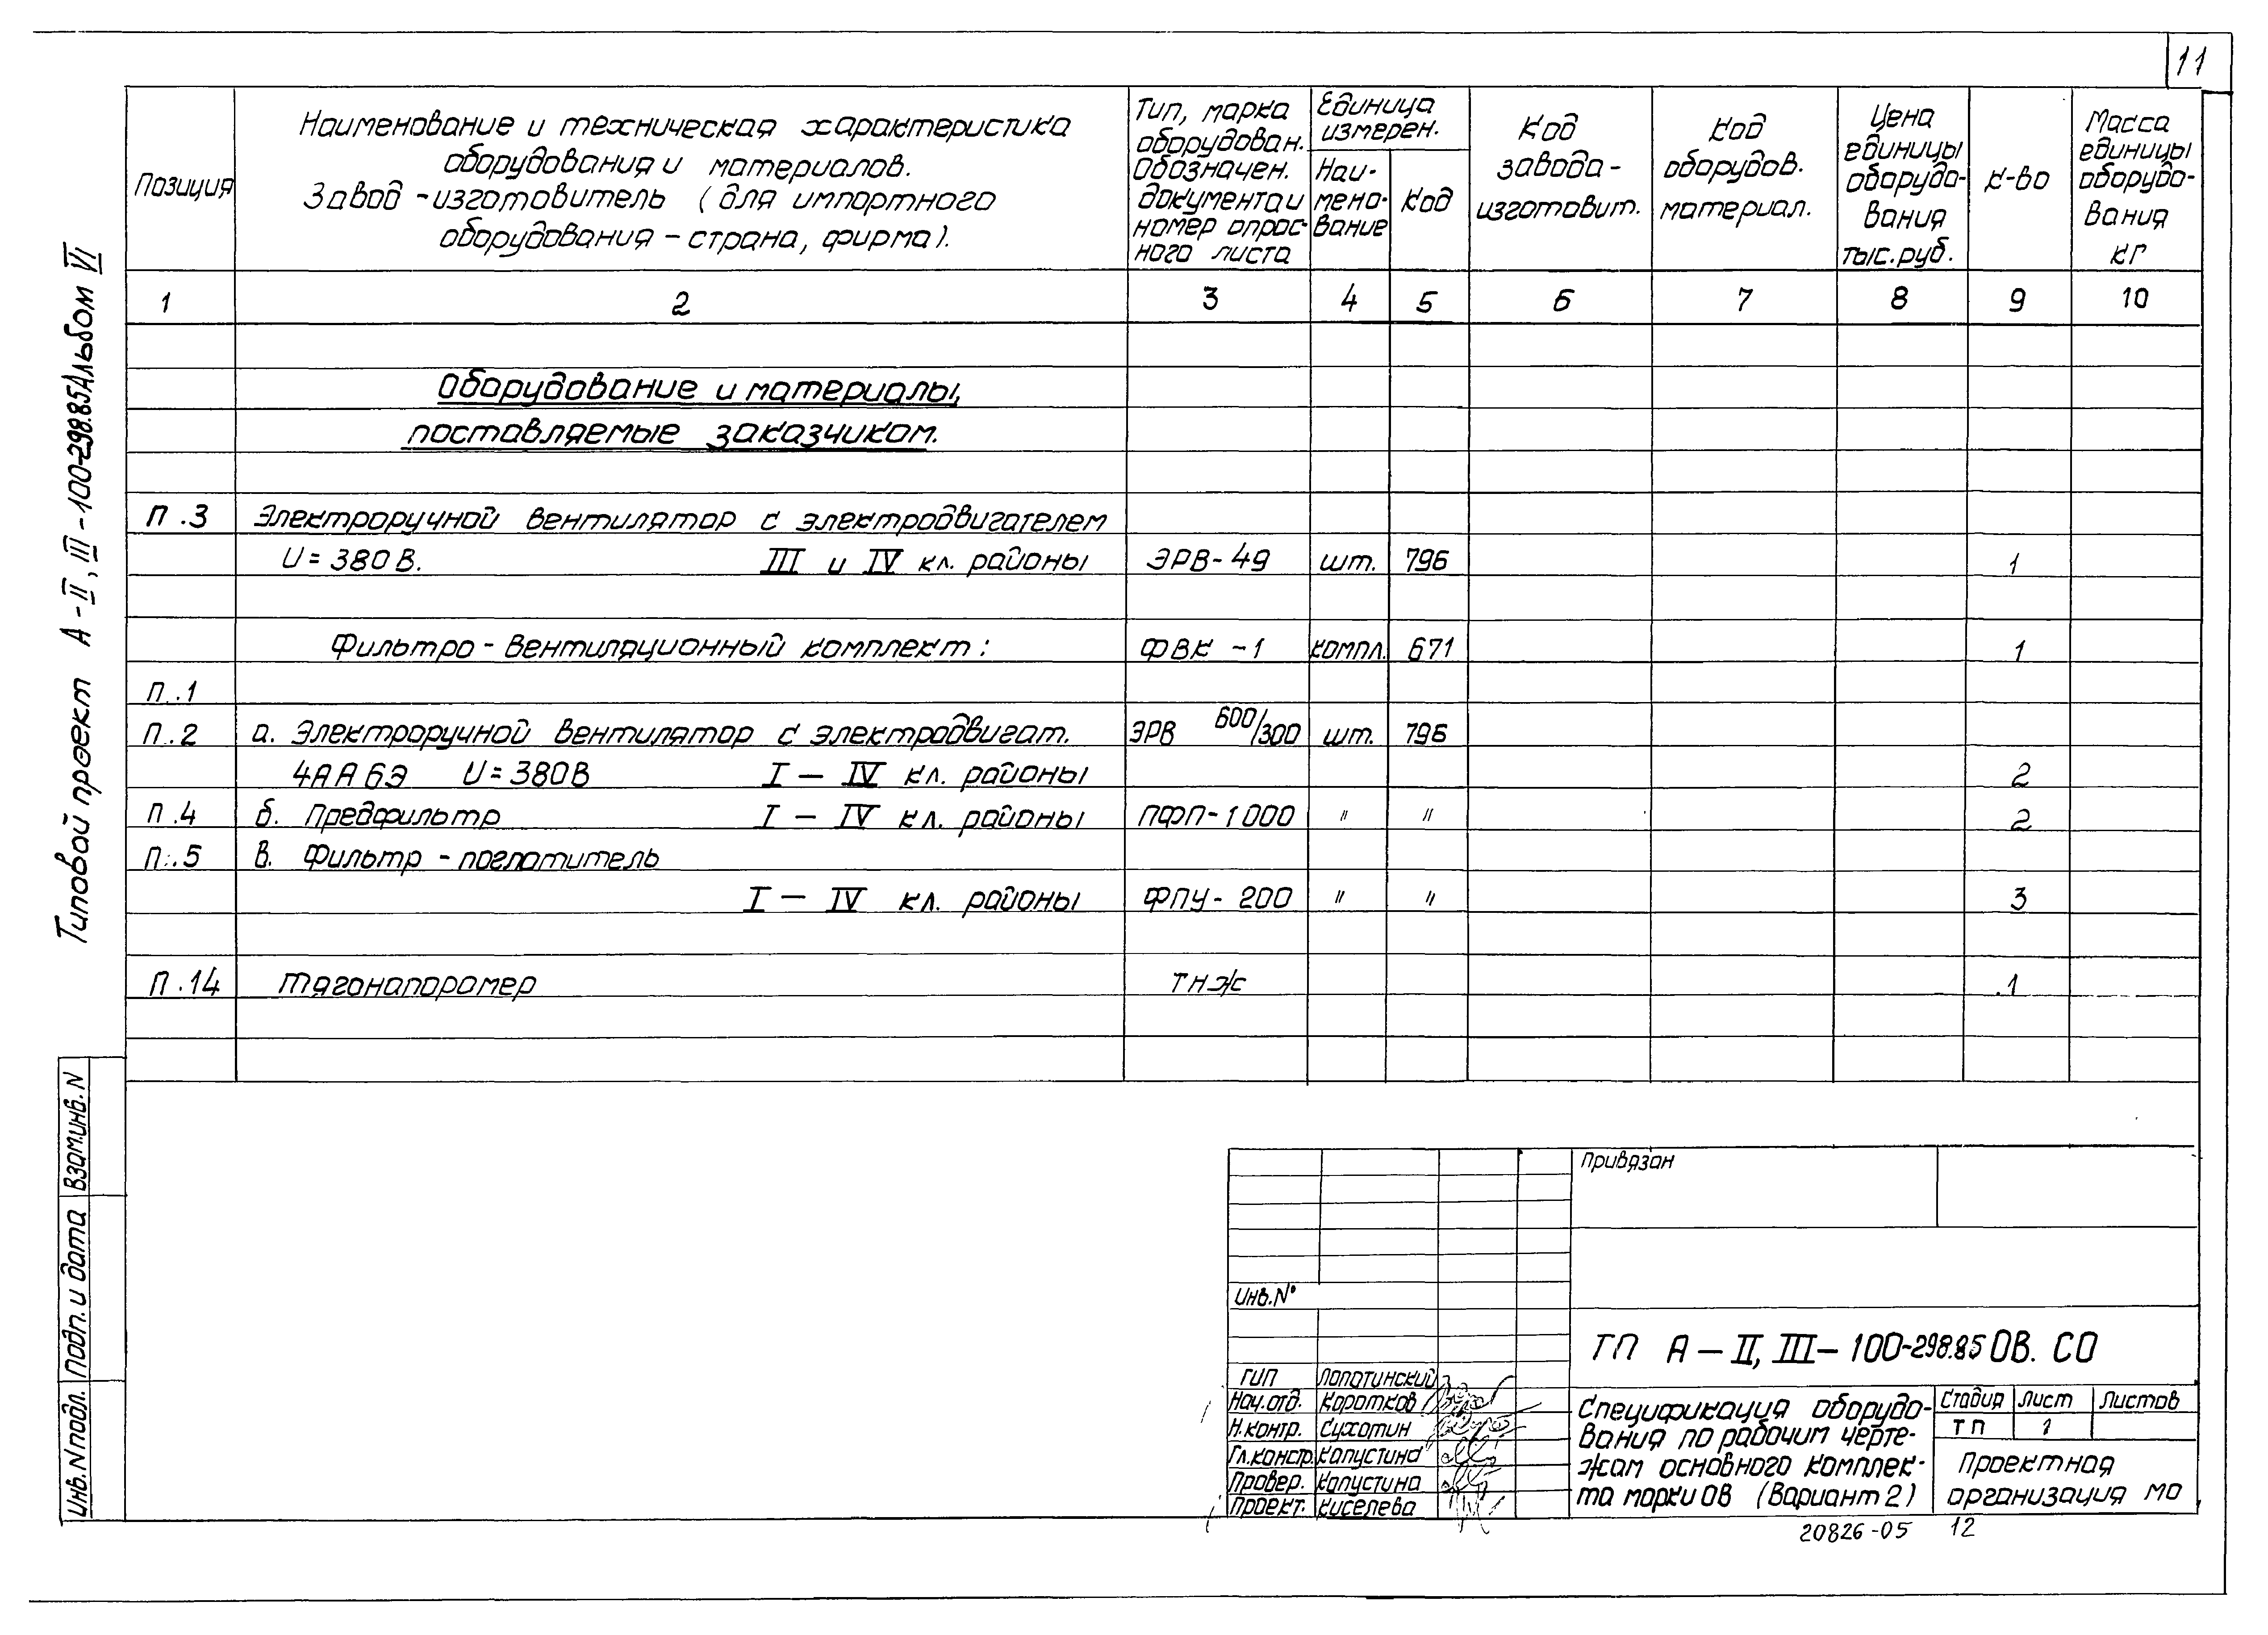 11
Типовой проект А-II, III-100-298.85 Альбом VI
Позиция
Наименование и техническая характеристика
оборудования и материалов.
Завод-изготовитель (для импортного
оборудования - страна, фирма).
Тип, марка
оборудован.
Обозначен.
документа и
номер опрос-
ного листа
Единица
измерен.
Наи-
мено-
вание
Код
Код
завода-
изготовит.
Код
оборудов.
материал.
Цена
единицы
оборудо-
вания
тыс.руб.
к-во
Масса
единицы
оборудо-
вания
кг
1 2 3 4 5 6 7 8 9 10
Оборудование и материалы,
поставляемые заказчиком.
П.3 Электроручной вентилятор с электродвигателем
U=380В. III и IV кл. районы ЭРВ-49 шт. 796 1
Фильтро-вентиляционный комплект: ФВК-1 компл. 671 1
П.1
П.2 а. Электроручной вентилятор с электродвигат. ЭРВ 600/300 шт. 796
4АА6Э U=380В I-IV кл. районы 2
П.4 б. Предфильтр I-IV кл. районы ПФП-1000 " " 2
П.5 в. Фильтр-поглотитель
I-IV кл. районы ФПУ-200 " " 3
П.14 Тягонапоромер ТНЖ 1
Взам.инв.N
Подп. и дата
Инв.N подл.
Привязан
Инв.N°
ТП А-II, III-100-298.85 ОВ. СО
ГИП Лопатинский
Нач.отд. Коротков
Н.контр. Сухотин
Гл.констр. Капустина
Провер. Капустина
Проект. Киселева
Спецификация оборудо-
вания по рабочим черте-
жам основного комплек-
та марки ОВ (Вариант 2)
Стадия Лист Листов
ТП 1
Проектная
организация МО
20826-05 12